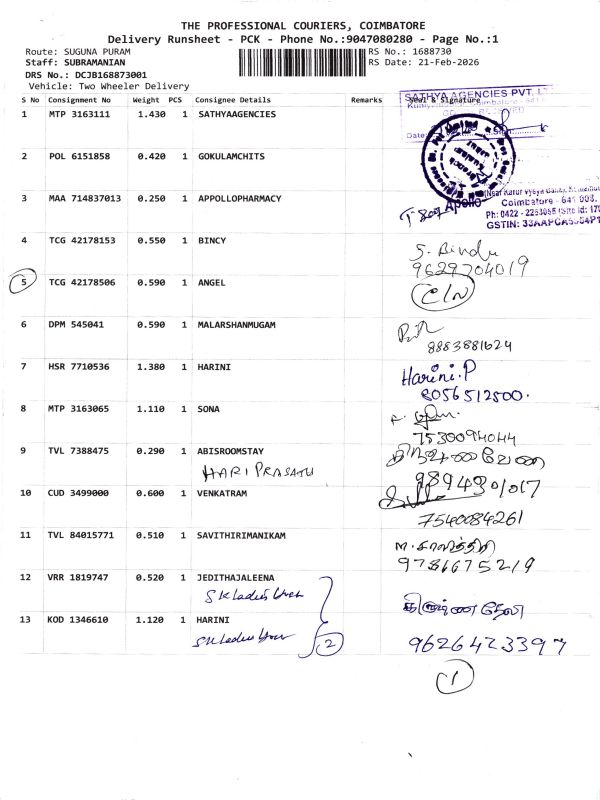 THE PROFESSIONAL COURIERS, COIMBATORE
Delivery Runsheet - PCK - Phone No.:9047080280 - Page No.:1
Route: SUGUNA PURAM
RS No.: 1688730
Staff: SUBRAMANIAN
RS Date: 21-Feb-2026
DRS No.: DCJB168873001
Vehicle: Two Wheeler Delivery
S No Consignment No Weight PCS Consignee Details Remarks Seal & Signature
SATHYA AGENCIES PVT. LT
1 MTP 3163111 1.430 1 SATHYAAGENCIES
2 POL 6151858 0.420 1 GOKULAMCHITS
3 MAA 714837013 0.250 1 APPOLLOPHARMACY
Apollo
Coimbatore - 641 008.
4 TCG 42178153 0.550 1 BINCY
S. Bindu
9629704019
5 TCG 42178506 0.590 1 ANGEL
C/N
6 DPM 545041 0.590 1 MALARSHANMUGAM
8883881624
7 HSR 7710536 1.380 1 HARINI
Harini.P
8056512800.
8 MTP 3163065 1.110 1 SONA
7530094044
9 TVL 7388475 0.290 1 ABISROOMSTAY
HARI PRASATH
9894301017
10 CUD 3499000 0.600 1 VENKATRAM
7540084261
11 TVL 84015771 0.510 1 SAVITHIRIMANIKAM
9781675219
12 VRR 1819747 0.520 1 JEDITHAJALEENA
13 KOD 1346610 1.120 1 HARINI
2
9626423397
1